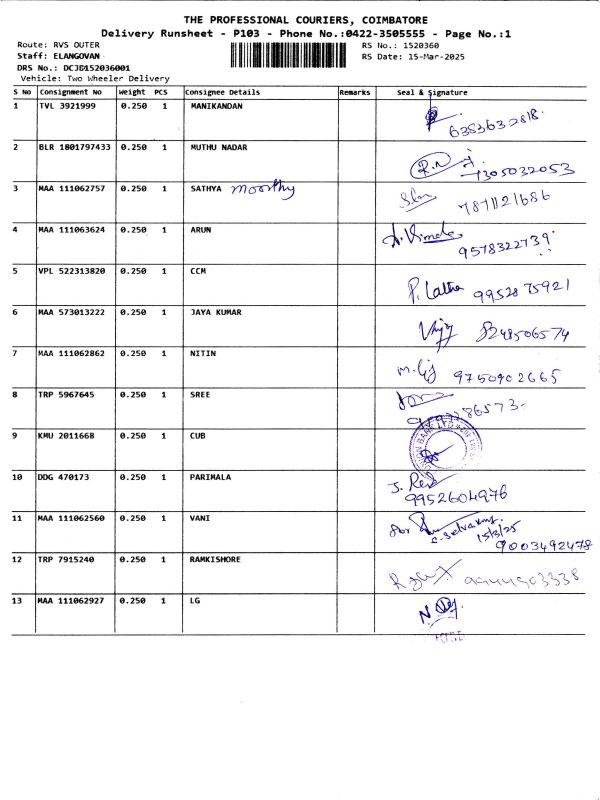 THE PROFESSIONAL COURIERS, COIMBATORE
Delivery Runsheet - P103 - Phone No.:0422-3505555 - Page No.:1
Route: RVS OUTER RS No.: 1520360
Staff: ELANGOVAN RS Date: 15-Mar-2025
DRS No.: DCJB152036001
Vehicle: Two Wheeler Delivery
S No Consignment No Weight PCS Consignee Details Remarks Seal & Signature
1 TVL 3921999 0.250 1 MANIKANDAN
6353632818
2 BLR 1801797433 0.250 1 MUTHU NADAR
7305032053
3 MAA 111062757 0.250 1 SATHYA moorthy
7871121686
4 MAA 111063624 0.250 1 ARUN
9578322739
5 VPL 522313820 0.250 1 CCM
P. Latha 9952875921
6 MAA 573013222 0.250 1 JAYA KUMAR
8248506574
7 MAA 111062862 0.250 1 NITIN
9750902665
8 TRP 5967645 0.250 1 SREE
9 KMU 2011668 0.250 1 CUB
10 DDG 470173 0.250 1 PARIMALA
9952604976
11 MAA 111062560 0.250 1 VANI
15/3/25
9003492478
12 TRP 7915240 0.250 1 RAMKISHORE
13 MAA 111062927 0.250 1 LG